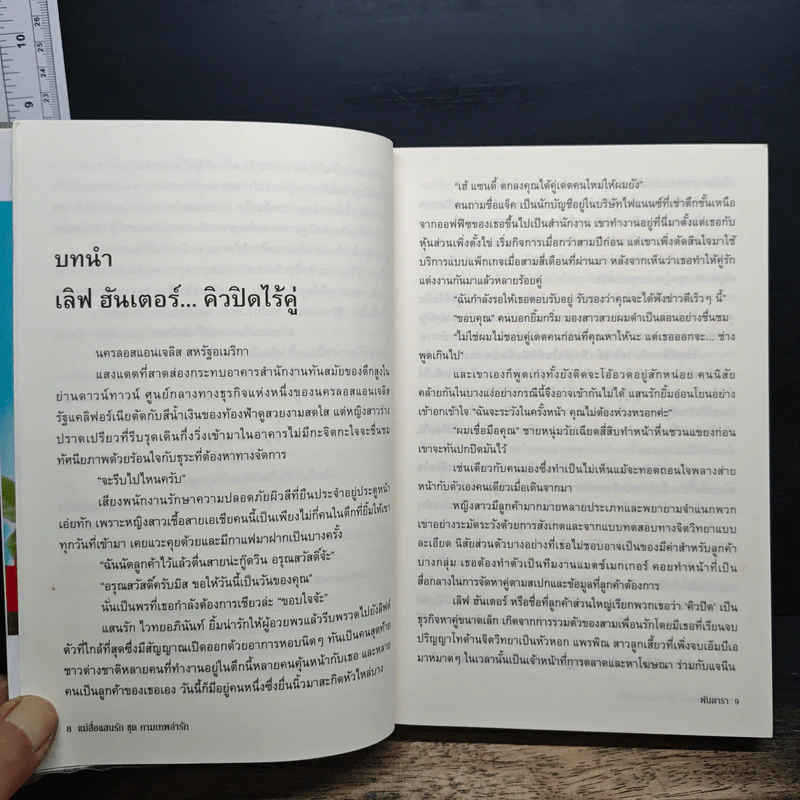 10
9
26
25
24
23
บทนำ
เลิฟ ฮันเตอร์... คิวปิดไร้คู่
นครลอสแอนเจลิส สหรัฐอเมริกา
แสงแดดที่สาดส่องกระทบอาคารสำนักงานทันสมัยของตึกสูงใน
ย่านดาวน์ทาวน์ ศูนย์กลางทางธุรกิจแห่งหนึ่งของนครลอสแอนเจลิส
รัฐแคลิฟอร์เนียตัดกับสีน้ำเงินของท้องฟ้าดูสวยงามสดใส แต่หญิงสาวร่าง
ปราดเปรียวที่รีบรุดเดินกึ่งวิ่งเข้ามาในอาคารไม่มีกะจิตกะใจจะชื่นชม
ทัศนียภาพด้วยร้อนใจกับธุระที่ต้องหาทางจัดการ
“จะรีบไปไหนครับ”
เสียงพนักงานรักษาความปลอดภัยผิวสีที่ยืนประจำอยู่ประตูหน้า
เอ่ยทัก เพราะหญิงสาวเชื้อสายเอเชียคนนี้เป็นเพียงไม่กี่คนในตึกที่ยิ้มให้เขา
ทุกวันที่เข้ามา เคยแวะคุยด้วยและมีกาแฟมาฝากเป็นบางครั้ง
“ฉันนัดลูกค้าไว้แล้วตื่นสายน่ะกู๊ดวิน อรุณสวัสดิ์จ้ะ”
“อรุณสวัสดิ์ครับมิส ขอให้วันนี้เป็นวันของคุณ”
นั่นเป็นพรที่เธอกำลังต้องการเชียวล่ะ “ขอบใจจ้ะ”
แสนรัก ไวทยอภินันท์ ยิ้มน่ารักให้ผู้อวยพรแล้วรีบพรวดไปยังลิฟต์
ตัวที่ใกล้ที่สุดซึ่งมีสัญญาณเปิดออกด้วยอาการหอบนิดๆ ทันเป็นคนสุดท้าย
ชาวต่างชาติหลายคนที่ทำงานอยู่ในตึกนี้หลายคนคุ้นหน้ากับเธอ และหลาย
คนเป็นลูกค้าของเธอเอง วันนี้ก็มีอยู่คนหนึ่งซึ่งยื่นนิ้วมาสะกิดหัวไหล่บาง
8 แม่สื่อแสนรัก ชุด กามเทพล่ารัก
“เฮ้ แซนดี้ ตกลงคุณได้คู่เดตคนใหม่ให้ผมยัง”
คนถามชื่อแจ็ค เป็นนักบัญชีอยู่ในบริษัทไฟแนนซ์ที่เช่าตึกชั้นเหนือ
จากออฟฟิซของเธอขึ้นไปเป็นสำนักงาน เขาทำงานอยู่ที่นี่มาตั้งแต่เธอกับ
หุ้นส่วนเพิ่งตั้งไข่ เริ่มกิจการเมื่อกว่าสามปีก่อน แต่เขาเพิ่งตัดสินใจมาใช้
บริการแบบแพ็กเกจเมื่อสามสี่เดือนที่ผ่านมา หลังจากเห็นว่าเธอทำให้คู่รัก
แต่งงานกันมาแล้วหลายร้อยคู่
“ฉันกำลังรอให้เธอตอบรับอยู่ รับรองว่าคุณจะได้ฟังข่าวดีเร็วๆ นี้”
“ขอบคุณ” คนบอกยิ้มกริ่ม มองสาวสวยผมดำเป็นลอนอย่างชื่นชม
“ไม่ใช่ผมไม่ชอบคู่เดตคนก่อนที่คุณหาให้นะ แต่เธอออกจะ... ช่าง
พูดเกินไป”
และเขาเองก็พูดเก่งทั้งยังติดจะโอ้อวดอยู่สักหน่อย คนนิสัย
คล้ายกันในบางแง่อย่างกรณีนี้จึงอาจเข้ากันไม่ได้ แสนรักยิ้มอ่อนโยนอย่าง
เข้าอกเข้าใจ “ฉันจะระวังในครั้งหน้า คุณไม่ต้องห่วงหรอกค่ะ”
“ผมเชื่อมือคุณ” ชายหนุ่มวัยเฉียดสี่สิบทำหน้าหื่นชวนแขยงก่อน
เขาจะทันปกปิดมันไว้
เช่นเดียวกับคนมองซึ่งทำเป็นไม่เห็นแม้จะทอดถอนใจพลางส่าย
หน้ากับตัวเองคนเดียวเมื่อเดินจากมา
หญิงสาวมีลูกค้ามากมายหลายประเภทและพยายามจำแนกพวก
เขาอย่างระมัดระวังด้วยการสังเกตและจากแบบทดสอบทางจิตวิทยาแบบ
ละเอียด นิสัยส่วนตัวบางอย่างที่เธอไม่ชอบอาจเป็นของมีค่าสำหรับลูกค้า
บางกลุ่ม เธอต้องทำตัวเป็นทีมงานแมตช์เมกเกอร์ คอยทำหน้าที่เป็น
สื่อกลางในการจัดหาคู่ตามสเปกและข้อมูลที่ลูกค้าต้องการ
เลิฟ ฮันเตอร์ หรือชื่อที่ลูกค้าส่วนใหญ่เรียกพวกเธอว่า ‘คิวปิด’ เป็น
ธุรกิจหาคู่ขนาดเล็ก เกิดจากการรวมตัวของสามเพื่อนรักโดยมีเธอที่เรียนจบ
ปริญญาโทด้านจิตวิทยาเป็นหัวหอก แพรพิณ สาวลูกเสี้ยวที่เพิ่งจบเอ็มบีเอ
มาหมาดๆ ในเวลานั้นเป็นเจ้าหน้าที่การตลาดและหาโฆษณา ร่วมกับแจนีน
พันดารา 9